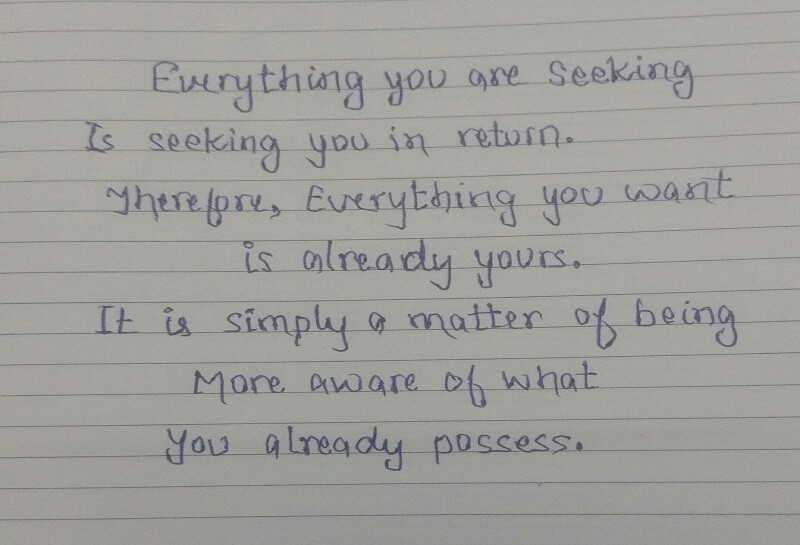 Everything you are seeking
Is seeking you in return.
Therefore, Everything you want
is already yours.
It is simply a matter of being
More aware of what
you already possess.